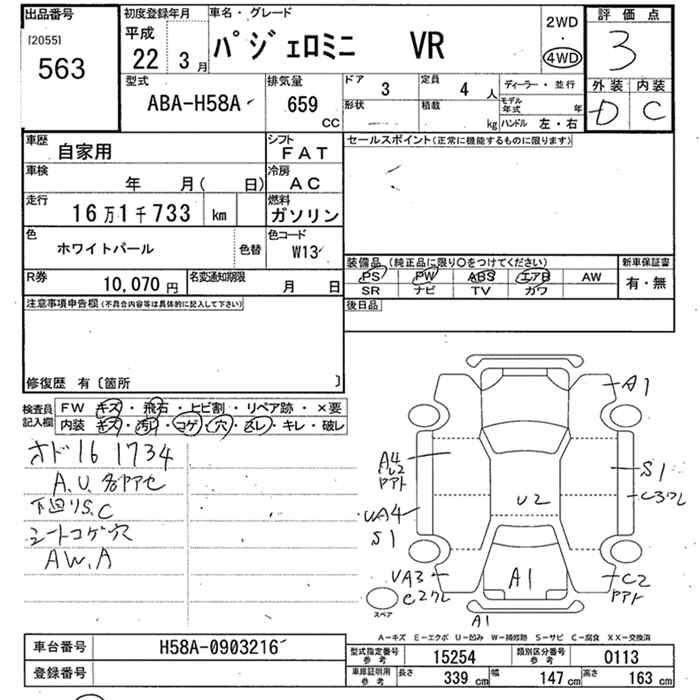 出品番号
[2055]
563
初度登録年月
平成
22 3月
車名・グレード
パジェロミニ VR
2WD
4WD
評価点
3
型式
ABA-H58A
排気量
659
CC
ドア
3
定員
4人
形状
積載
kg
ディーラー・並行
モデル年式 年
ハンドル 左・右
外装 内装
D C
車歴
自家用
シフト
FAT
車検
年 月( 日)
冷房
AC
走行
16万1千733 km
燃料
ガソリン
色
ホワイトパール
色替
色コード
W13
R券
10,070円
名変通知期限
月 日
セールスポイント(正常に機能するものに限ります)
装備品(純正品に限り○をつけてください)
PS PW ABS エアB AW
SR ナビ TV カワ
新車保証書
有・無
後日品
注意事項申告欄(不具合内容等は具体的に記入して下さい)
修復歴 有〔箇所 〕
検査員記入欄
FW キズ・飛石・ヒビ割・リペア跡・×要
内装 キズ・汚れ・コゲ・穴・スレ・キレ・破レ
オド16 1734
A.U.名ヤヤセ
下回りS.C
シートコゲ穴
AW.A
A1
A4
S1
C3ワレ
U2
UA4
S1
UA3
C2ワレ
A1
C2
A1
スペア
A-キズ E-エクボ U-凹み W-補修跡 S-サビ C-腐食 XX-交換済
車台番号
H58A-0903216
登録番号
型式指定番号 参考
15254
類別区分番号 参考
0113
車庫証明用 参考
長さ 339cm
幅 147cm
高さ 163cm